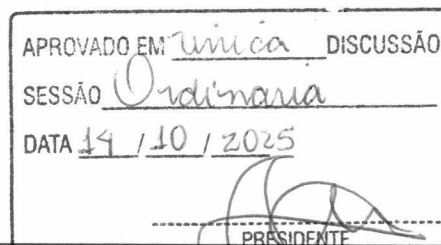 APROVADO EM única DISCUSSÃO
SESSÃO Ordinaria
DATA 14 / 10 / 2025
PRESIDENTE